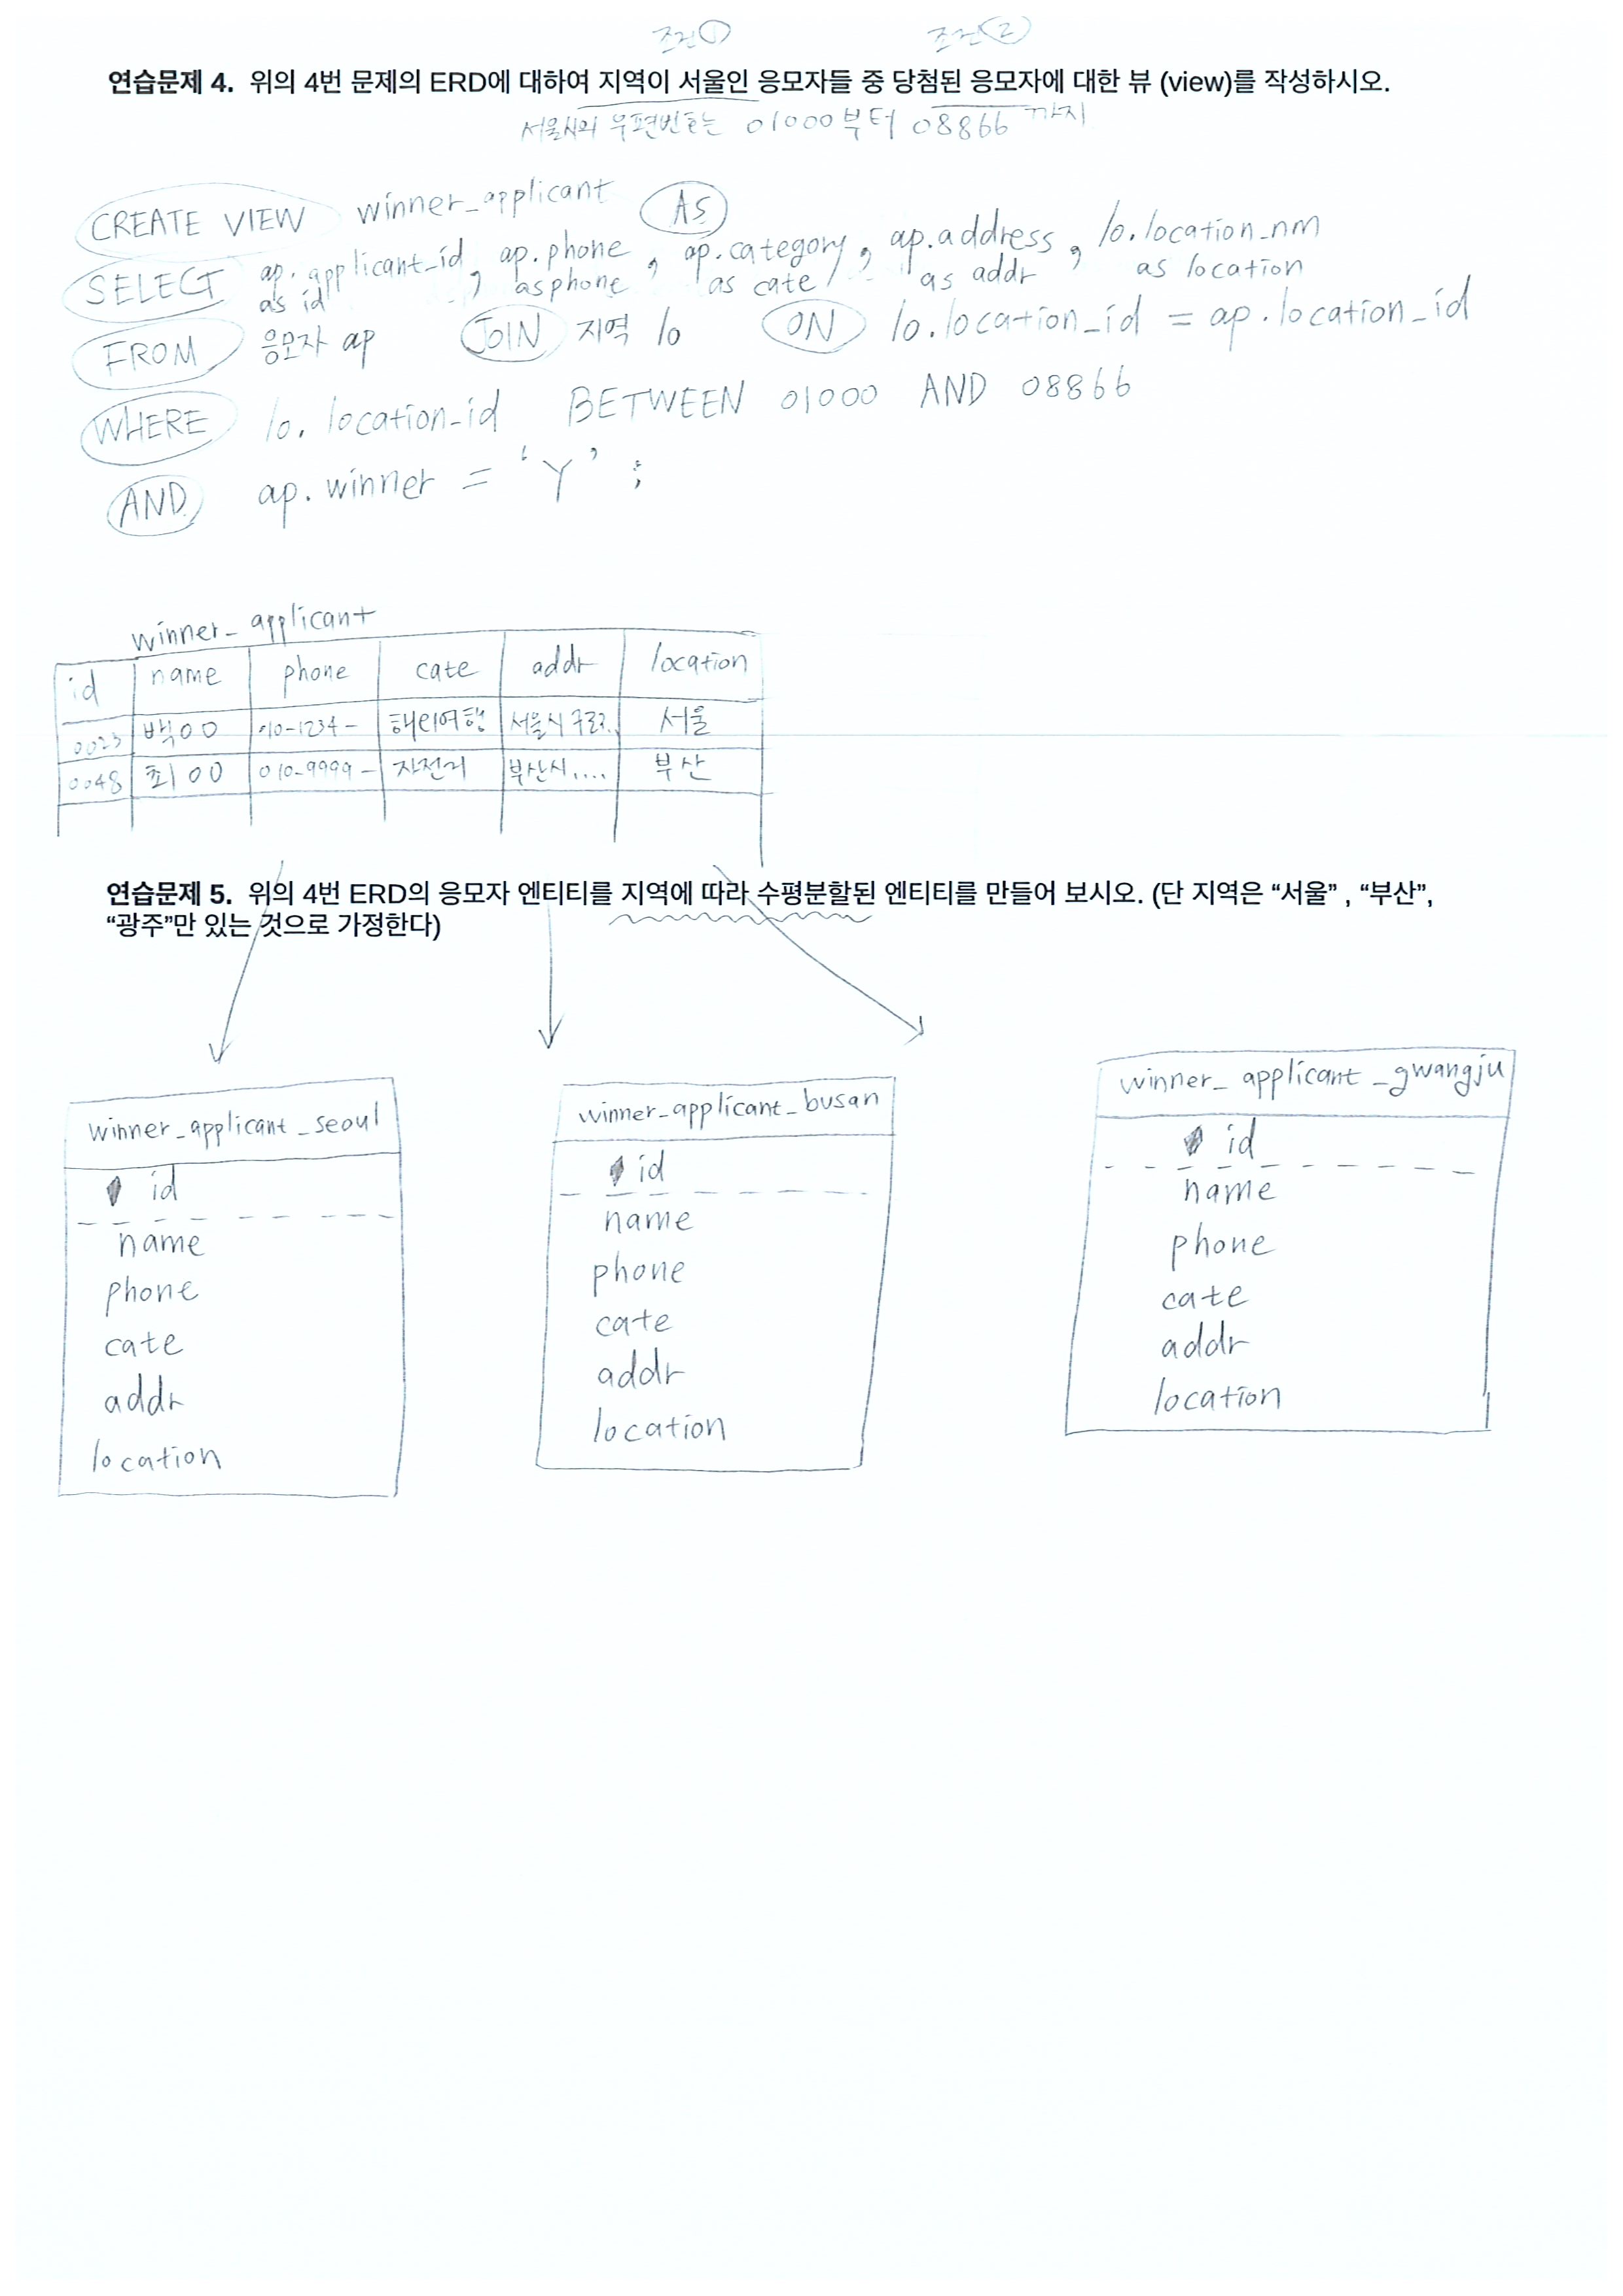 조건① 조건②
연습문제 4. 위의 4번 문제의 ERD에 대하여 지역이 서울인 응모자들 중 당첨된 응모자에 대한 뷰 (view)를 작성하시오.
서울시의 우편번호는 01000부터 08866 까지
CREATE VIEW winner_applicant AS
SELECT ap.applicant_id, ap.phone, ap.category, ap.address, lo.location_nm
as id as phone as cate as addr as location
FROM 응모자 ap JOIN 지역 lo ON lo.location_id = ap.location_id
WHERE lo.location_id BETWEEN 01000 AND 08866
AND ap.winner = 'Y' ;
winner_applicant
id name phone cate addr location
0023 백OO 010-1234- 해외여행 서울시 구로.. 서울
0048 최OO 010-9999- 자전거 부산시.... 부산
연습문제 5. 위의 4번 ERD의 응모자 엔티티를 지역에 따라 수평분할된 엔티티를 만들어 보시오. (단 지역은 “서울” , “부산”,
“광주”만 있는 것으로 가정한다)
winner_applicant_seoul
id
name
phone
cate
addr
location
winner_applicant_busan
id
name
phone
cate
addr
location
winner_applicant_gwangju
id
name
phone
cate
addr
location